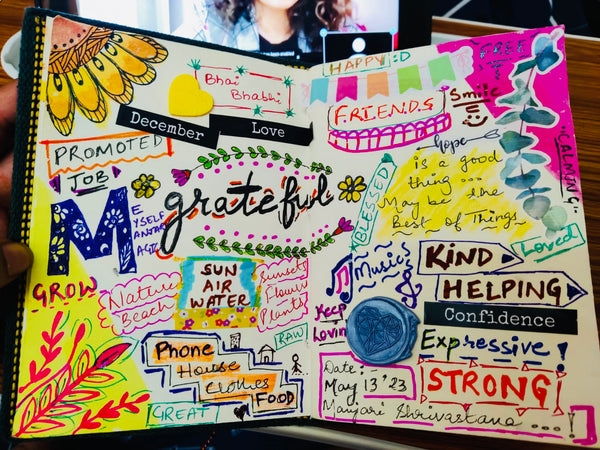 Bhai
Bhabhi
December
Love
PROMOTED
JOB
grateful
M
E
MYSELF
GROW
Nature
Beach
SUN
AIR
WATER
Sunsets
Flower
Plants
RAW
Phone
House
Clothes
FOOD
GREAT
HAPPY :D
FREE
F.R.I.E.N.D.S
Smile
CALMING
hope
is a good
thing ...
May be the
Best of Things
BLESSED
Loved
Music
KIND
HELPING
Confidence
Keep
Loving
Expressive!
STRONG
Date:
May 13 '23
Manjari Shrivastava ...!